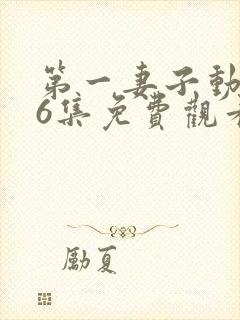 第一妻子動
6集免費觀看
勵夏